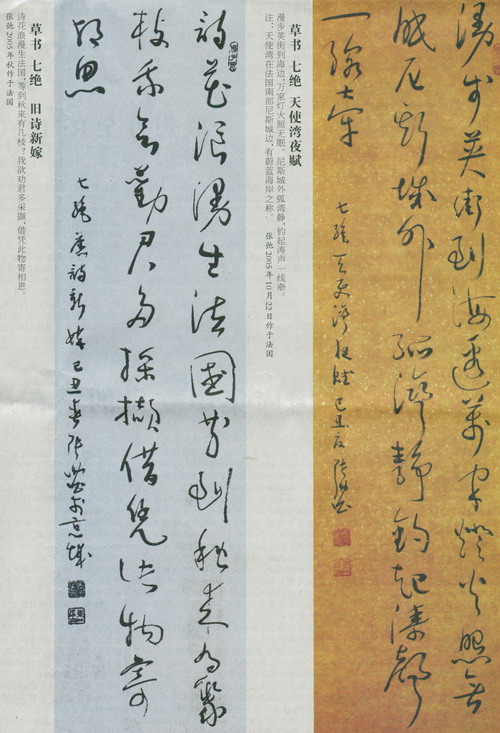 漫步英街到海邊萬家燈火照無
眠尼斯城外弧灣靜釣起濤聲
一線牽
七絕天使灣夜賦己丑夏張弛
草书 七绝 天使湾夜赋
漫步英街到海边,万家灯火照无眠。尼斯城外弧湾静,钓起涛声一线牵。
注:天使湾在法国南部尼斯城边,有蔚蓝海岸之称。
张弛2005年10月22日作于法国
詩花浪漫生法國等到秋来有幾
枝我欲勸君多採擷借凭此物寄
相思
七絕舊詩新嫁己丑春張弛於京城
草书 七绝 旧诗新嫁
诗花浪漫生法国,等到秋来有几枝?我欲劝君多采撷,借凭此物寄相思。
张弛2005年秋作于法国